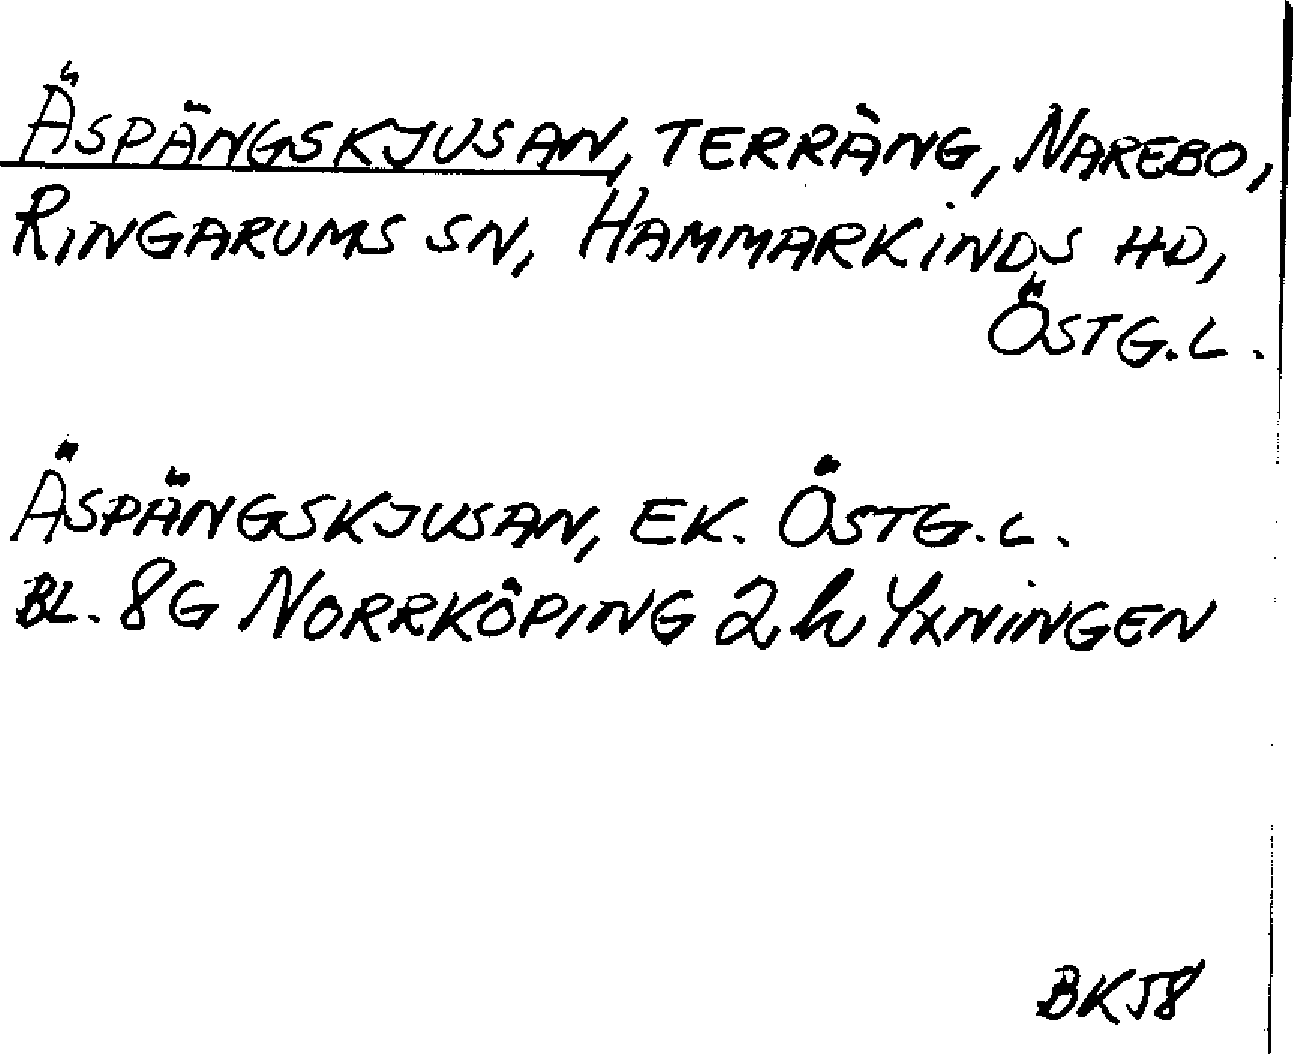 ÄSPÄNGSKJUSAN, TERRÄNG, NAREBO,
RINGARUMS SN, HAMMARKINDS HD,
ÖSTG.L.
ÄSPÄNGSKJUSAN, EK. ÖSTG.L.
BL. 8G NORRKÖPING 2h YXNINGEN
BKJ8